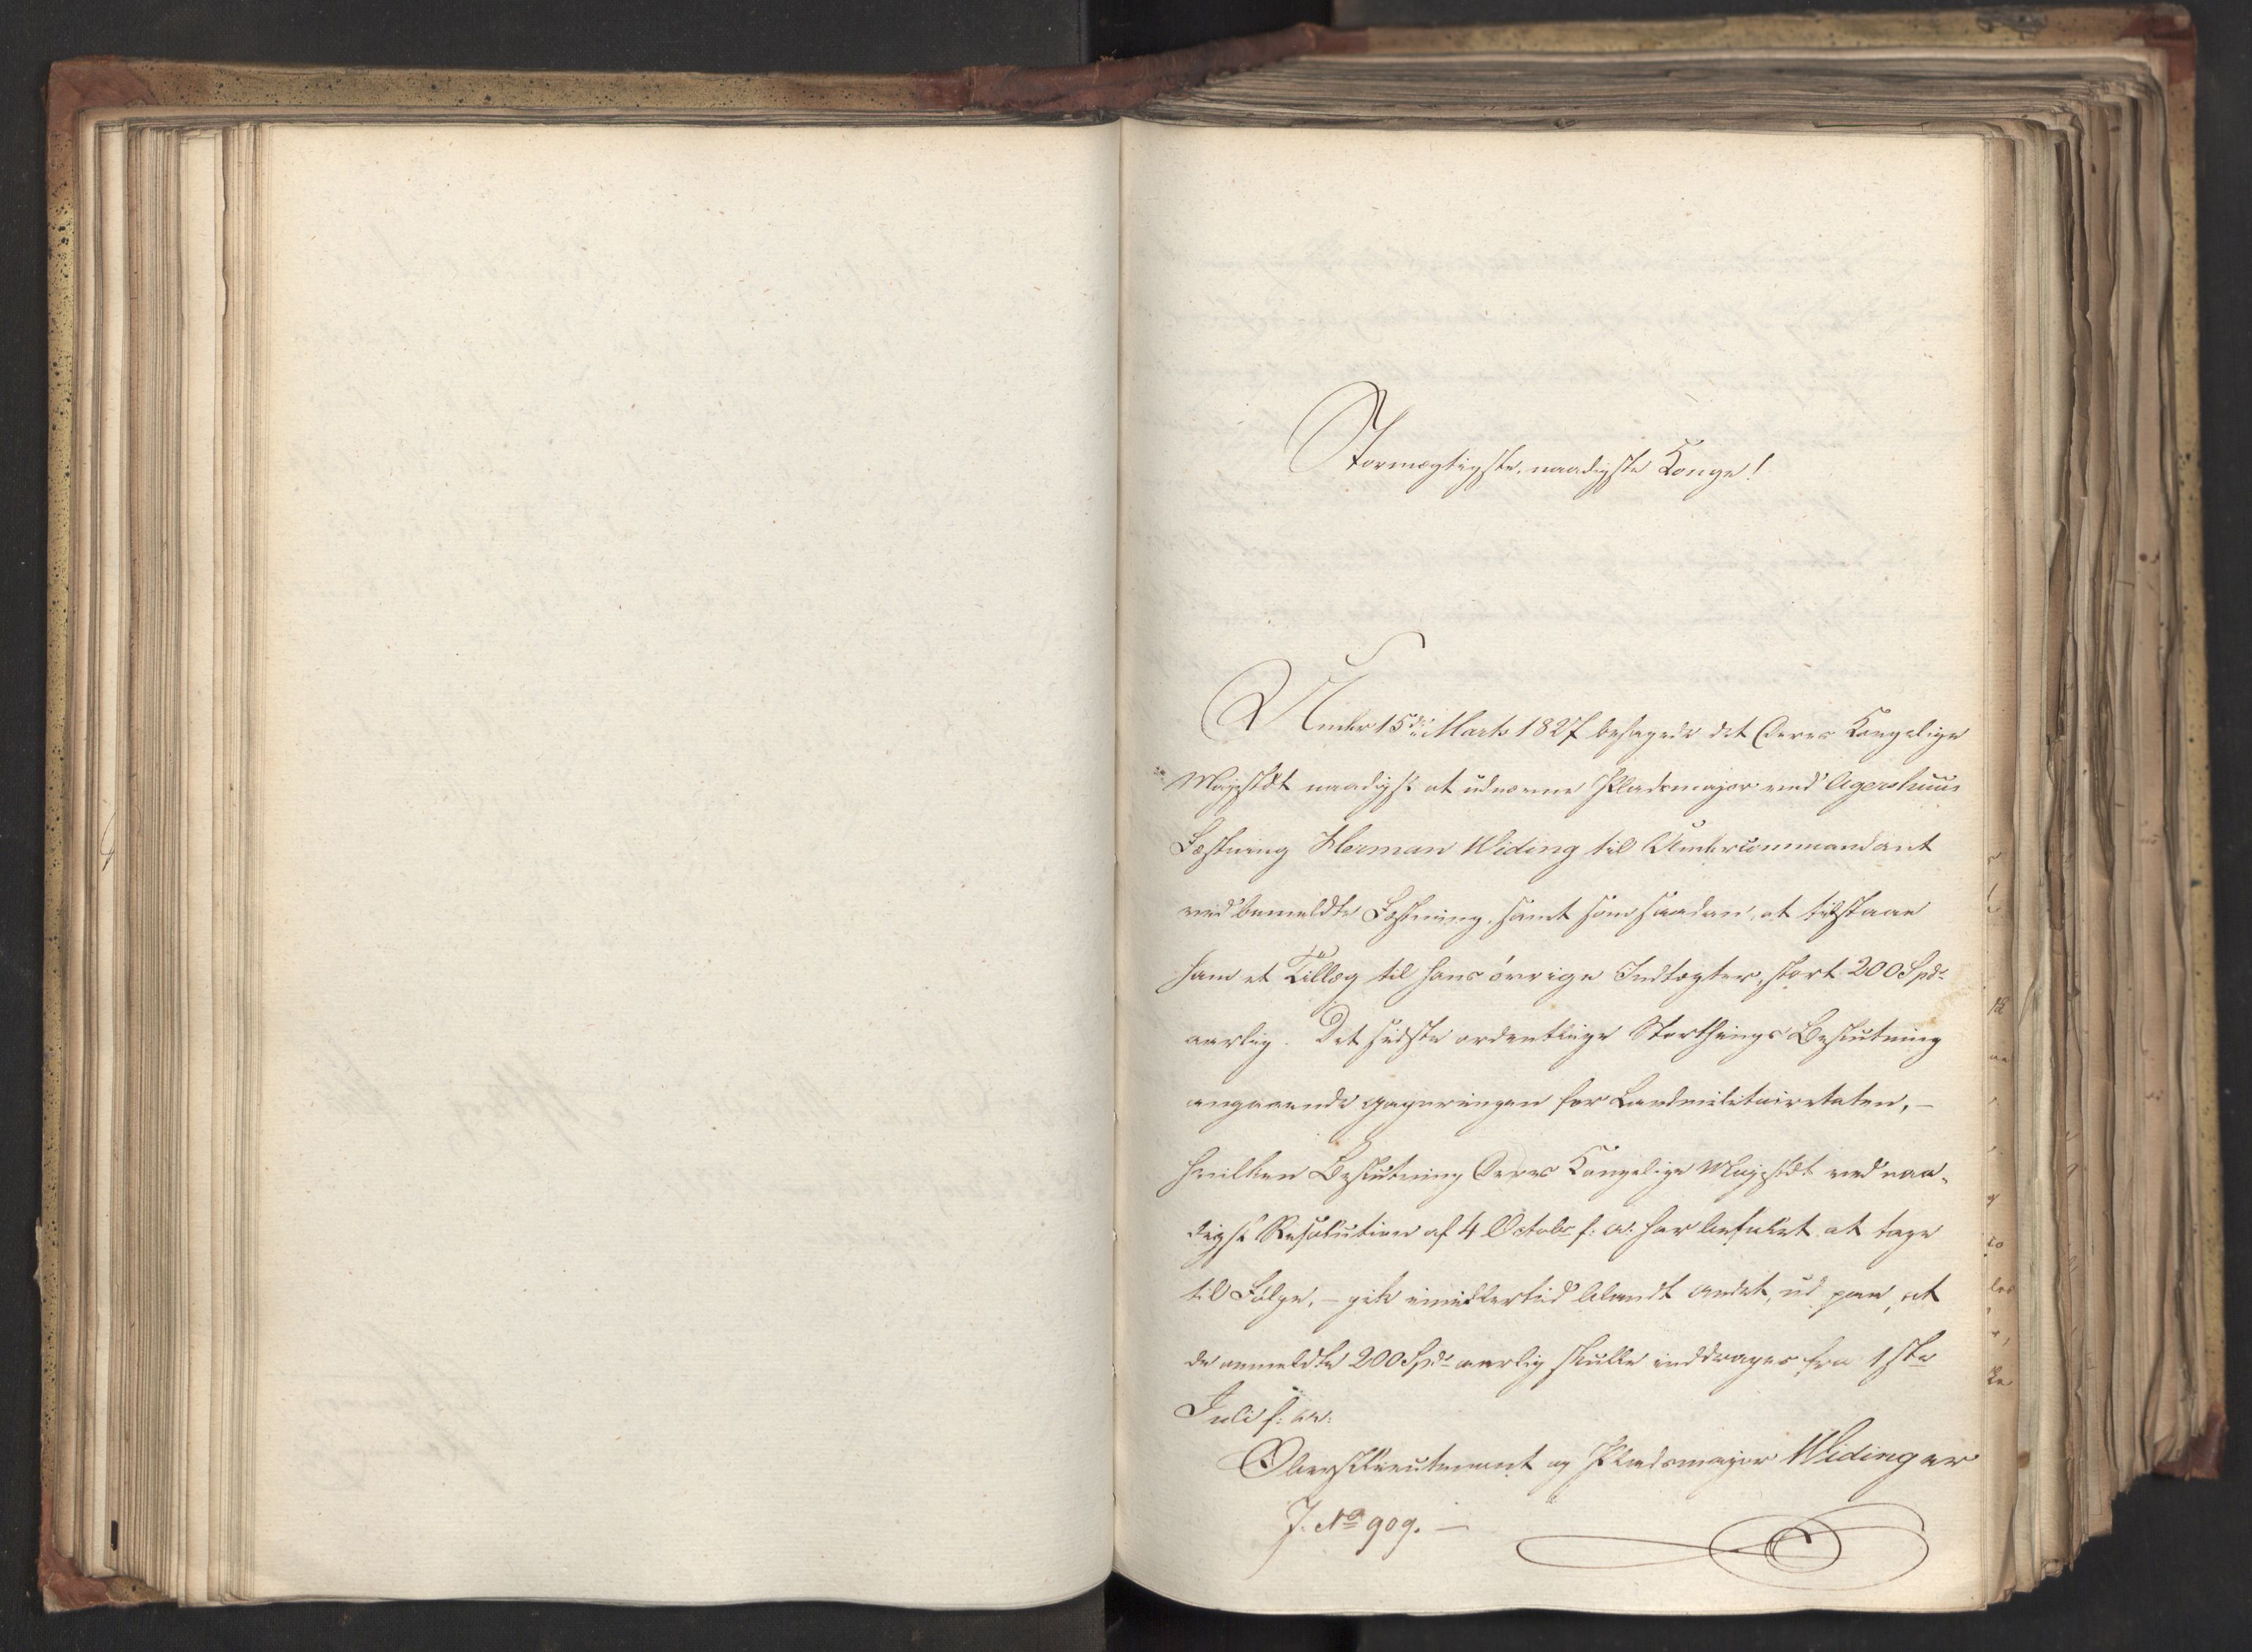 Stormægtigste, naadigste Konge!
Under 15de Marts 1827 behagede det Deres Kongelige
Majestæt naadigst at udnævne Pladsmajor ved Agershuus
Fæstning Herman Widing til Undercommandant
ved bemeldte Fæstning, samt som saadan, at tilstaae
ham et Tillæg til hans øvrige Indtægter, stort 200 Spd.
aarlig. Det sidste ordentlige Storthings Beslutning
angaaende Gageringen for Landmilitairetaten, –
hvilken Beslutning Deres Kongelige Majestæt ved naa-
digst Resolution af 4 Octobr f: A: har befalet at tage
til Følge, – gik imidlertid blandt andet, ud paa, at
de anmeldte 200 Spd. aarlig skulle inddrages fra 1ste
Juli f: A:
Oberstlieutenant og Pladsmajor Widing er
J. No 909. –